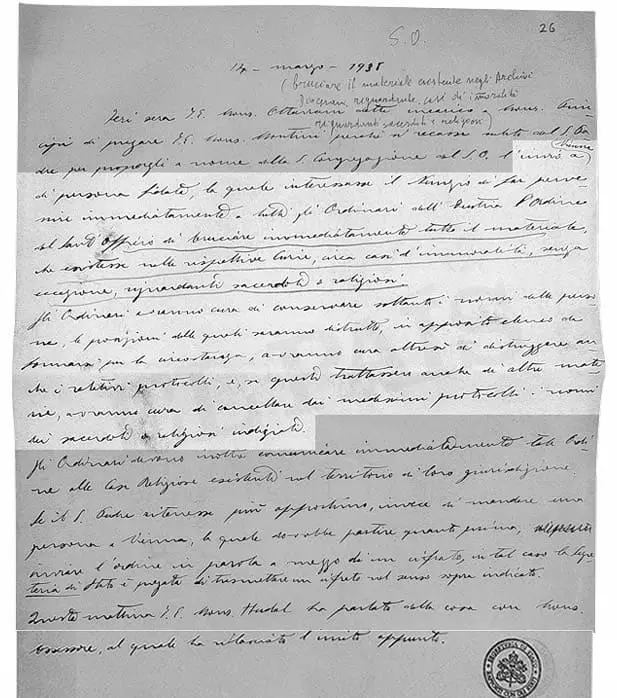 26
S.O.
14 - marzo - 1938
(bruciare il materiale esistente negli Archivi
Diocesani, riguardante casi di immoralità
riguardanti sacerdoti e religiosi)
Ieri sera S.E. Mons. Ottaviani dette incarico a Mons.
di pregare S.E. Mons. Montini perché si recasse subito dal S. Pa-
dre per proporgli a nome della S. Congregazione del S.O. l'invio a
Vienna
di persona fidata, la quale interessasse il Nunzio di far perve-
nire immediatamente a tutti gli Ordinari dell'Austria l'Ordine
del Sant'Offizio di bruciare immediatamente tutto il materiale,
che esistesse nelle rispettive Curie, circa casi d'immoralità, senza
eccezione, riguardanti sacerdoti o religiosi.
Gli Ordinari avranno cura di conservare soltanto i nomi delle perso-
ne, le posizioni delle quali saranno distrutte, in apposito elenco da
formarsi per la circostanza, avranno cura altresì di distruggere an-
che i relativi protocolli, e, se questi trattassero anche di altre mate-
rie, avranno cura di cancellare dai medesimi protocolli i nomi
dei sacerdoti o religiosi indiziati.
Gli Ordinari devono inoltre comunicare immediatamente tale Ordi-
ne alle Case Religiose esistenti nel territorio di loro giurisdizione.
Se il S. Padre ritenesse più opportuno, invece di mandare una
persona a Vienna, la quale dovrebbe partire quanto prima,
inviare l'ordine in parola a mezzo di un cifrato, in tal caso la Segre-
teria di Stato è pregata di trasmettere un cifrato nel senso sopra indicato.
Questa mattina S.E. Mons. Hudal ha parlato della cosa con Mons.
Assessore, al quale ha rilasciato l'unito appunto.